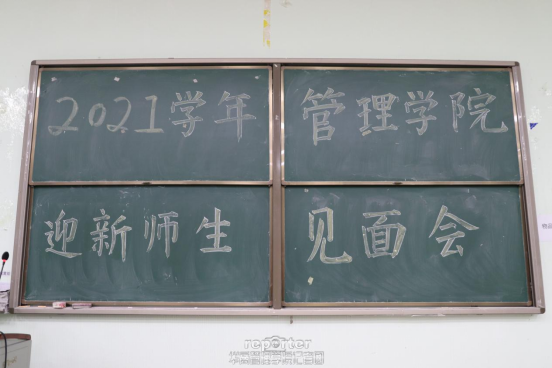 2021学年 管理学院
迎新师生 见面会
reporter